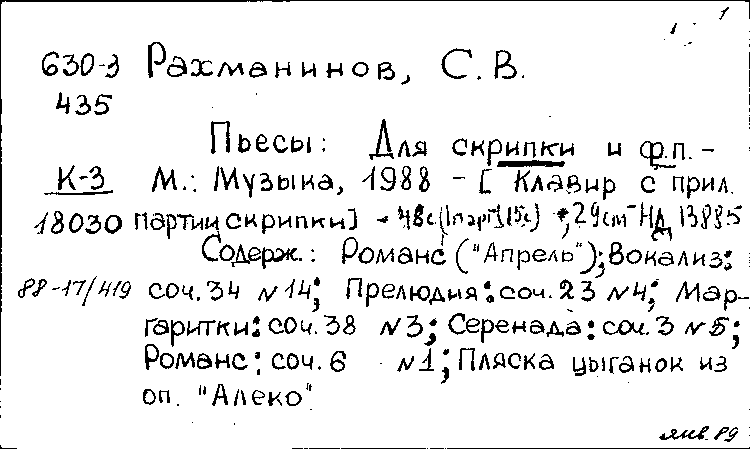 1
630-3 Рахманинов, С.В.
435
Пьесы: Для скрипки и ф.п. -
К-3 М.: Музыка, 1988 - [Клавир с прил.
18030 партии скрипки] - 48с., 29см НД 13885
Содерж.: Романс ("Апрель"); Вокализ:
88-17/419 соч. 34 №14; Прелюдия: соч. 23 №4; Мар-
гаритки: соч. 38 №3; Серенада: соч. 3 №5;
Романс: соч. 6 №1; Пляска цыганок из
оп. "Алеко"
янв. 89